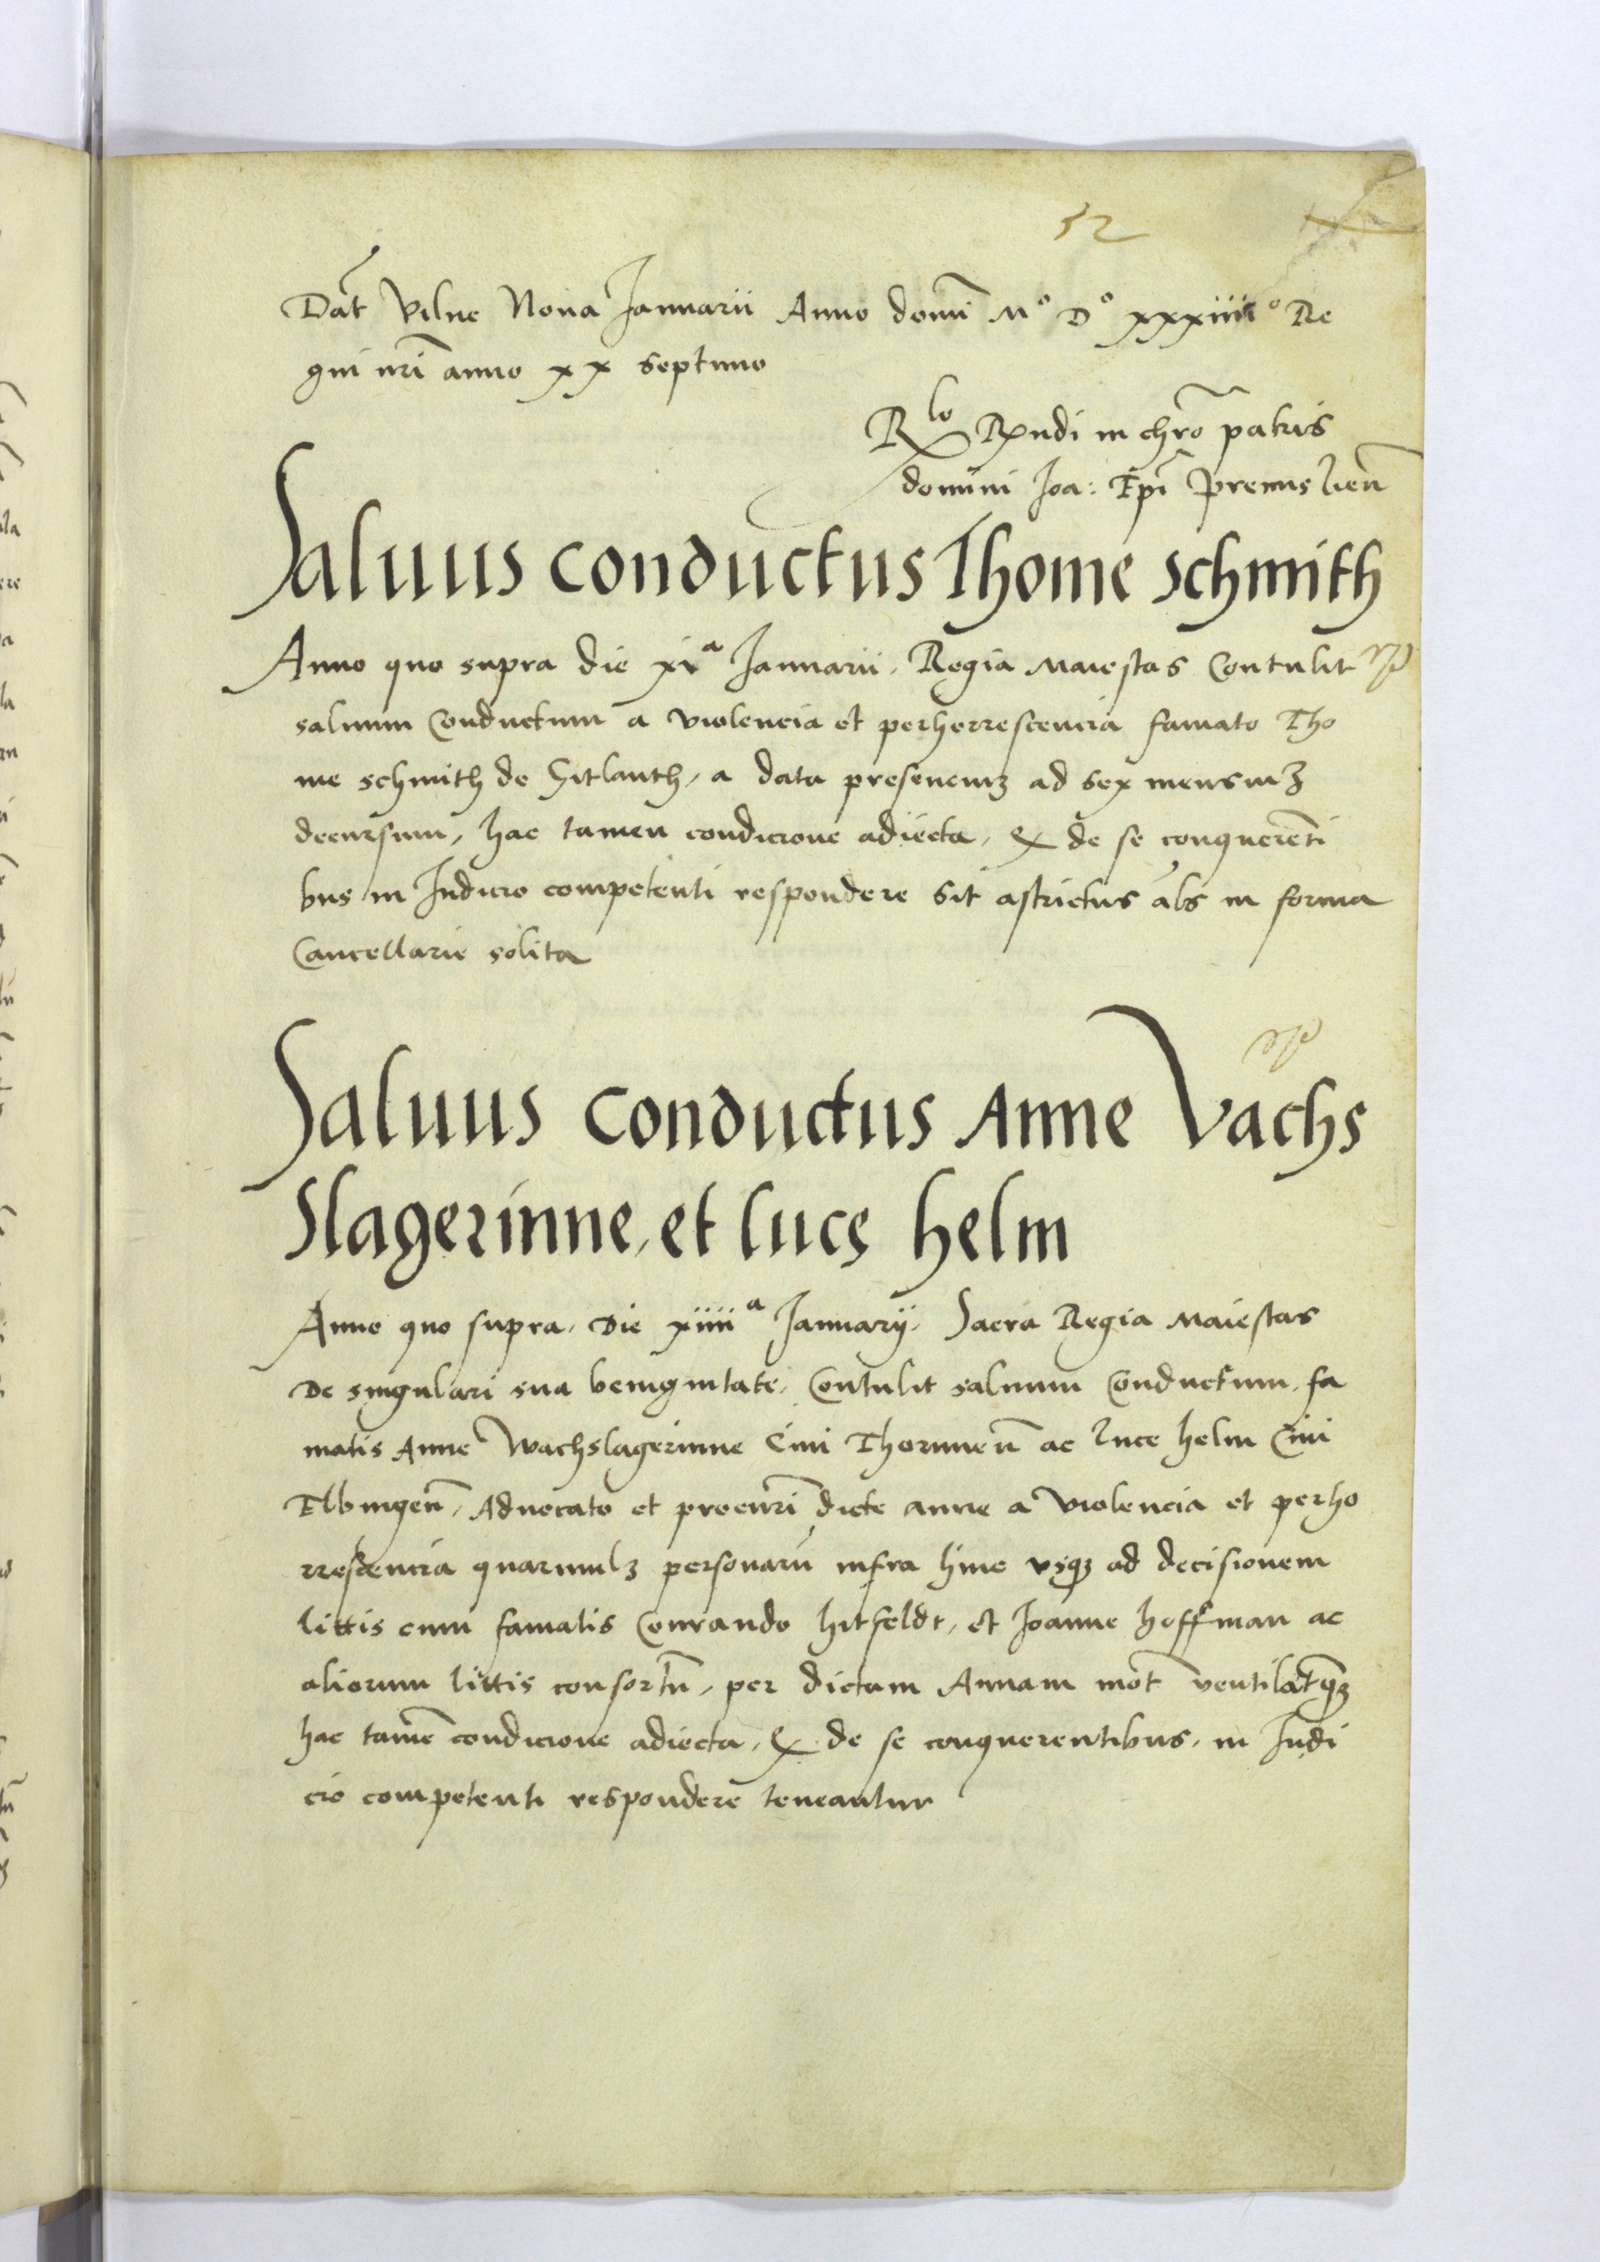 52
Dat̄ Vilne Nona Januarii Anno domī M° D° xxxiiii° Re
gni nr̄i anno xx septimo
R^lo R̄ndi in chr̄o patris
domini Joa: Ep̄i Premislien̄
Saluus conductus Thome Schmith
Anno quo supra die xi^a Januarii, Regia Maiestas Contulit
saluum Conductum a violencia et perhorrescencia famato Tho
me schmith de Hitlanth, a data presencium ad sex mensium
decursum, hac tamen condicione adiecta, qͩ de se conquerēti
bus in Iudicio competenti respondere sit astrictus al̄s in forma
Cancellarie solita
Saluus conductus Anne Vachs
Slagerinne, et lucę helm
Anno quo supra, Die xiiii^a Januarij, Sacra Regia Maiestas
De singulari sua benignitate, Contulit saluum Conductum, fa
matis Anne Wachslagerinne Ciui Thorunen̄ ac luce helm Ciui
Elbingen̄, Aduocato et procur̄i dicte anne a violencia et perho
rrescencia quarumlꝫ personarū infra hinc vsqꝫ ad decisionem
littis cum famatis Conrando hitfeldt, et Joanne hoffman ac
aliorum littis consortū, per dictam Annam mot̄ ventilatqꝫ
hac tamē condicione adiecta, qͩ de se conquerentibus, in Iudi
cio competenti respondere teneantur